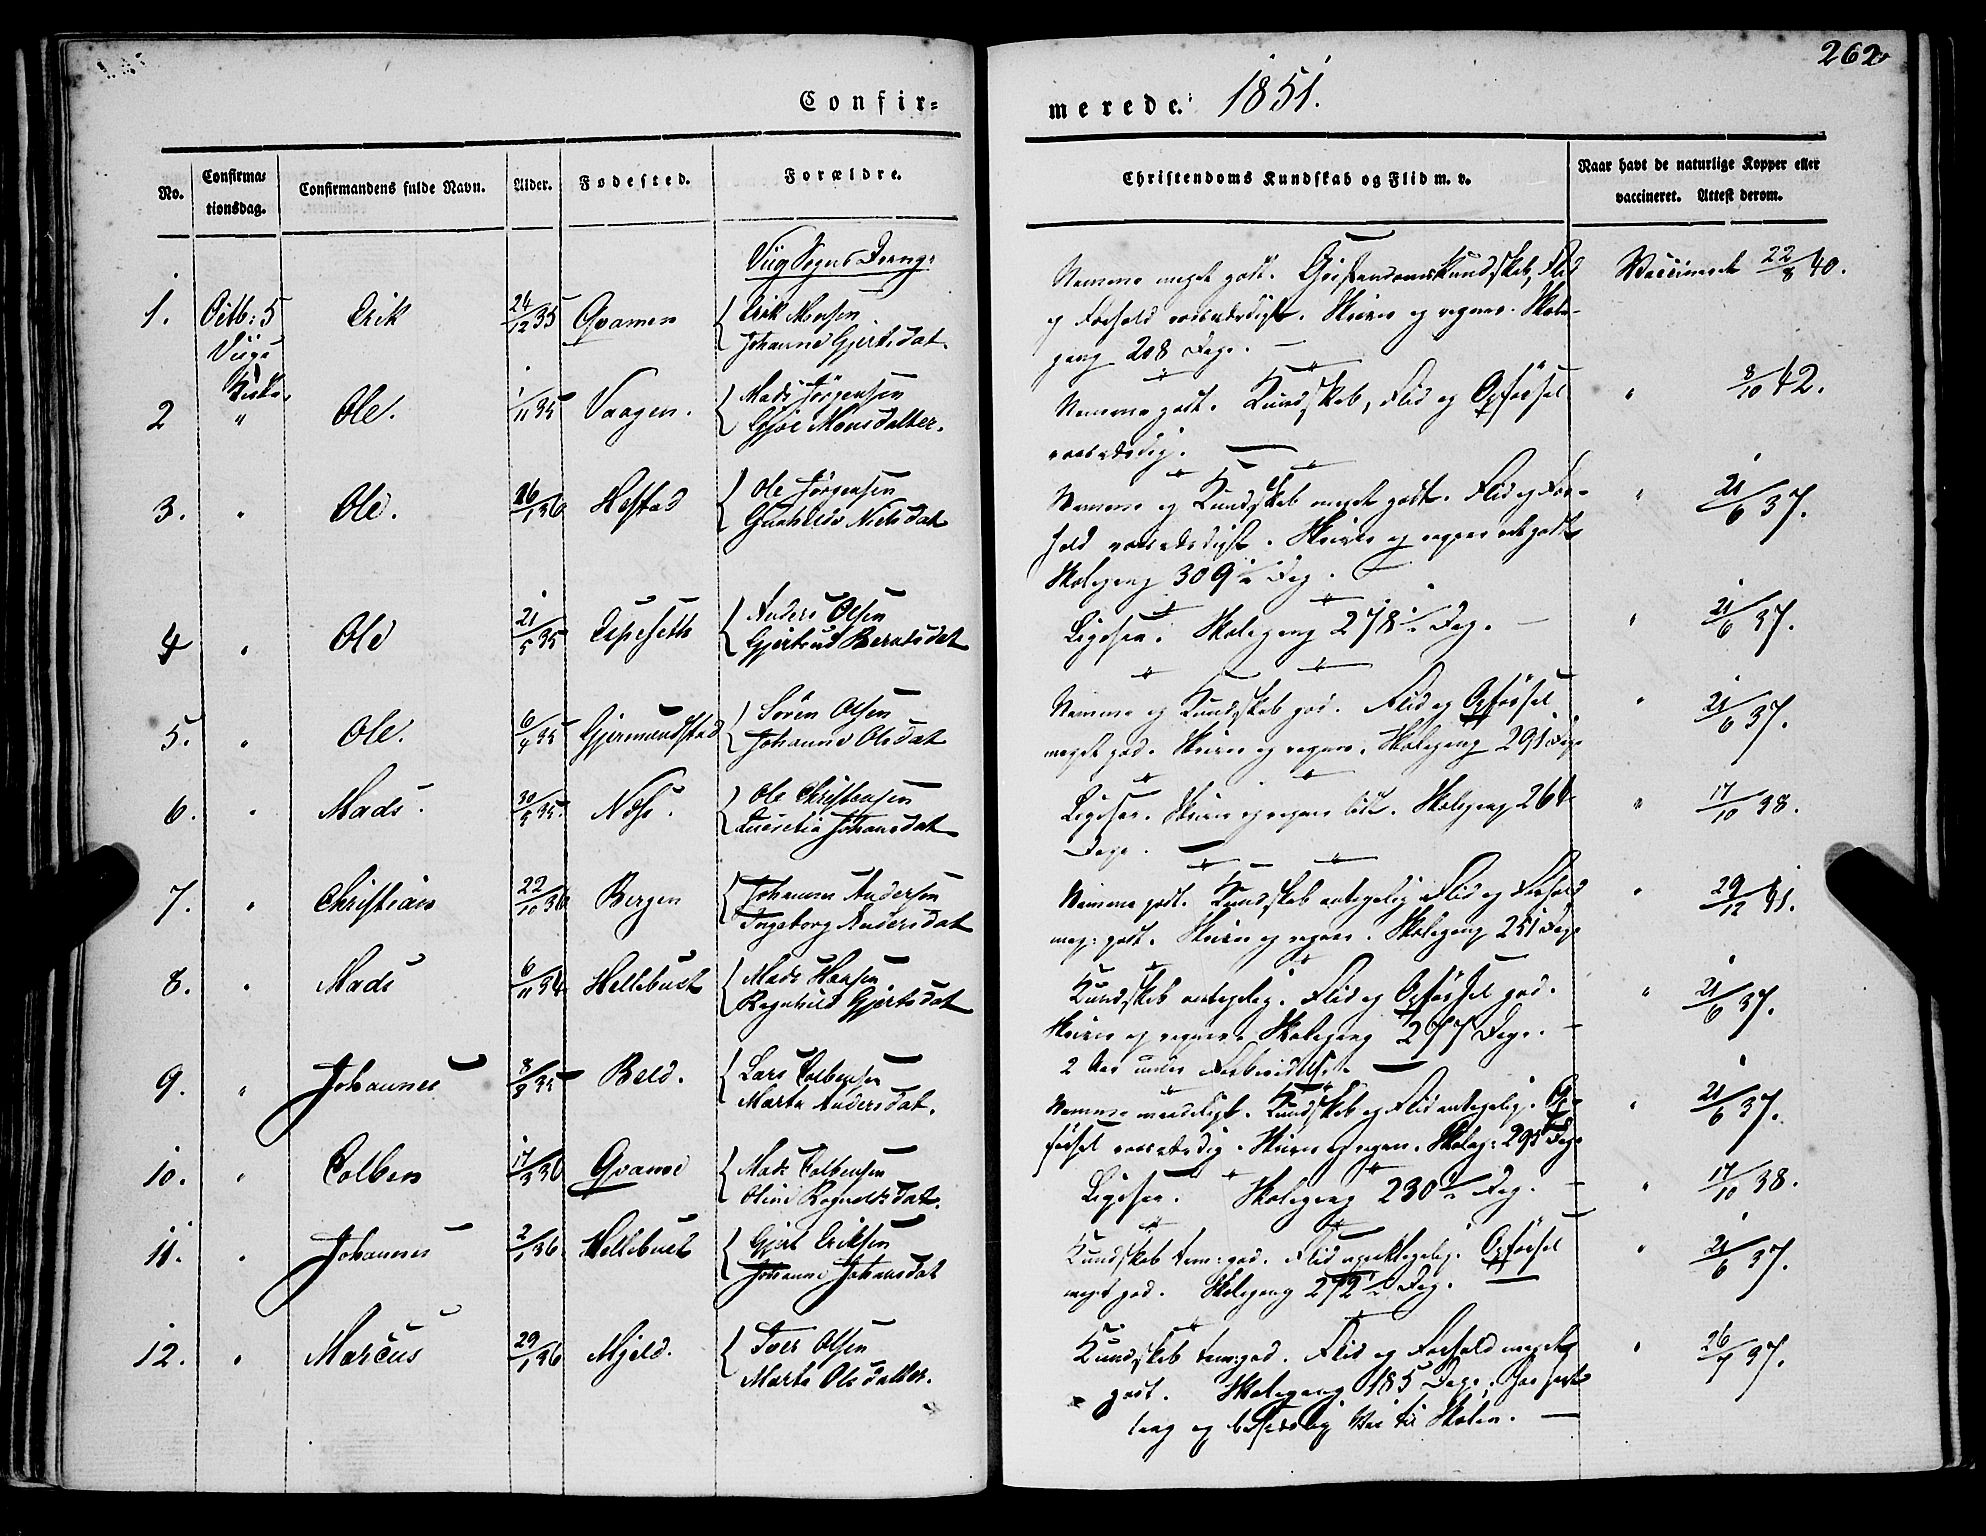 262
Confir-
merede. 1851.
No.
Confirma-
tionsdag.
Confirmandens fulde Navn.
Alder.
Fødested.
Forældre.
Christendoms Kundskab og Flid m. v.
Naar havt de naturlige Kopper eller
vaccineret. Attest derom.
Viig Sogns Drenge
1. Octb: 5 Erik 24/12 35 Qvamen { Erik Monsen
Viigs Johanne Gjertsdat.
Kirke.
Nemme meget godt. Christendomskundskab, Flid
og Forhold roesværdigt. Skriver og regner. Skole-
gang 208 Dage. —
Vaccineret 22/8 40.
2 " Ole. 1/11 35 Vaagen. { Mads Jörgensen
Monsdatter.
Nemme godt. Kundskab, Flid og Opførsel
roesværdig. —
" 8/10 42.
3. " Ole. 26/1 36 Hestad { Ole Jörgensen
Gunhilde Nielsdat
Nemme og Kundskab meget godt. Flid og For-
hold roesværdigt. Skriver og regner
Skolegang 309 Dag.
" 21/6 37.
4 " Ole 21/5 35 Espeseth { Anders Olsen
Gjertrud Berntsdat
Ligesaa. Skolegang 278 Dag. —
" 21/6 37.
5. " Ole. 6/4 35 Gjermundstad { Sören Olsen
Johanne Olsdat
Nemme og Kundskab god. Flid og Opførsel
meget god. Skriver og regner. Skolegang 291 Dage
" 21/6 37.
6. " Mads. 30/5 35. Næse. { Ole Christensen
Lucretia Johansdat
Ligesaa. Skriver og regner lidt. Skolegang 264
Dage. —
" 17/10 38.
7. " Christian 22/10 36 Bergen { Johannes Andersen
Ingeborg Andersdat
Nemme godt. Kundskab antagelig Flid og Forhold
meg: godt. Skriver og regner. Skolegang 251 Dage
" 29/12 41.
8. " Mads 6/11 34 Hellebust { Mads Hansen
Ragnhild Gjertsdat
Kundskab antagelig. Flid og Opførsel god.
Skriver og regner. Skolegang 277 Dage. —
2 Aar under Forberedelse. —
" 21/6 37.
9. " Johannes 8/8 35 Beld. { Lars Colbensen
Marta Andersdat.
Nemme maadeligt. Kundskab og Flid antagelig. Op-
førsel roesværdig. Skriver og regner. Skoleg: 295 Dage
" 21/6 37.
10. " Colben 17/3 36 Qvamme { Mads Colbensen
Oline Rognaldsdat.
Ligesaa. Skolegang 230 Dag. —
" 17/10 38.
11. " Johannes 2/1 36. Hellebust { Gjert Eriksen
Johanne Johansdat
Kundskab tem: god. Flid Opførsel
meget god. Skolegang 272 Dag. —
" 21/6 37.
12. " Marcus 29/1 36 Mjeld. { Iver Olsen
Marta Olsdatter.
Kundskab tem: god. Flid og Forhold meget
godt. Skolegang 185 Dage, har havt
lang og besværlig Vei til Skolen. —
" 26/7 37.